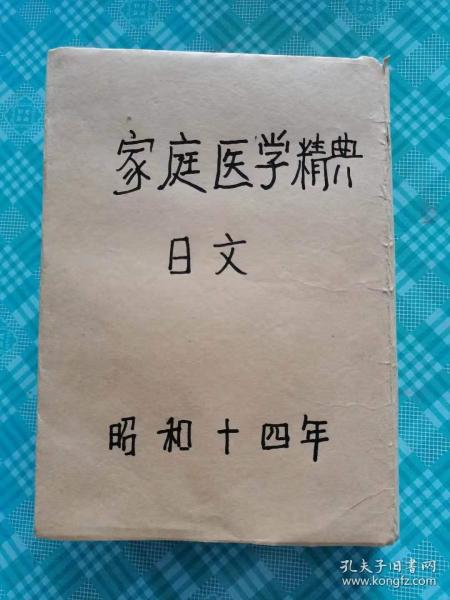 家庭医学精典
日文
昭和十四年
孔夫子旧书网
www.kongfz.com